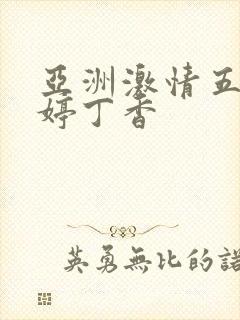 亞洲激情五
婷丁香
英勇無比的諾